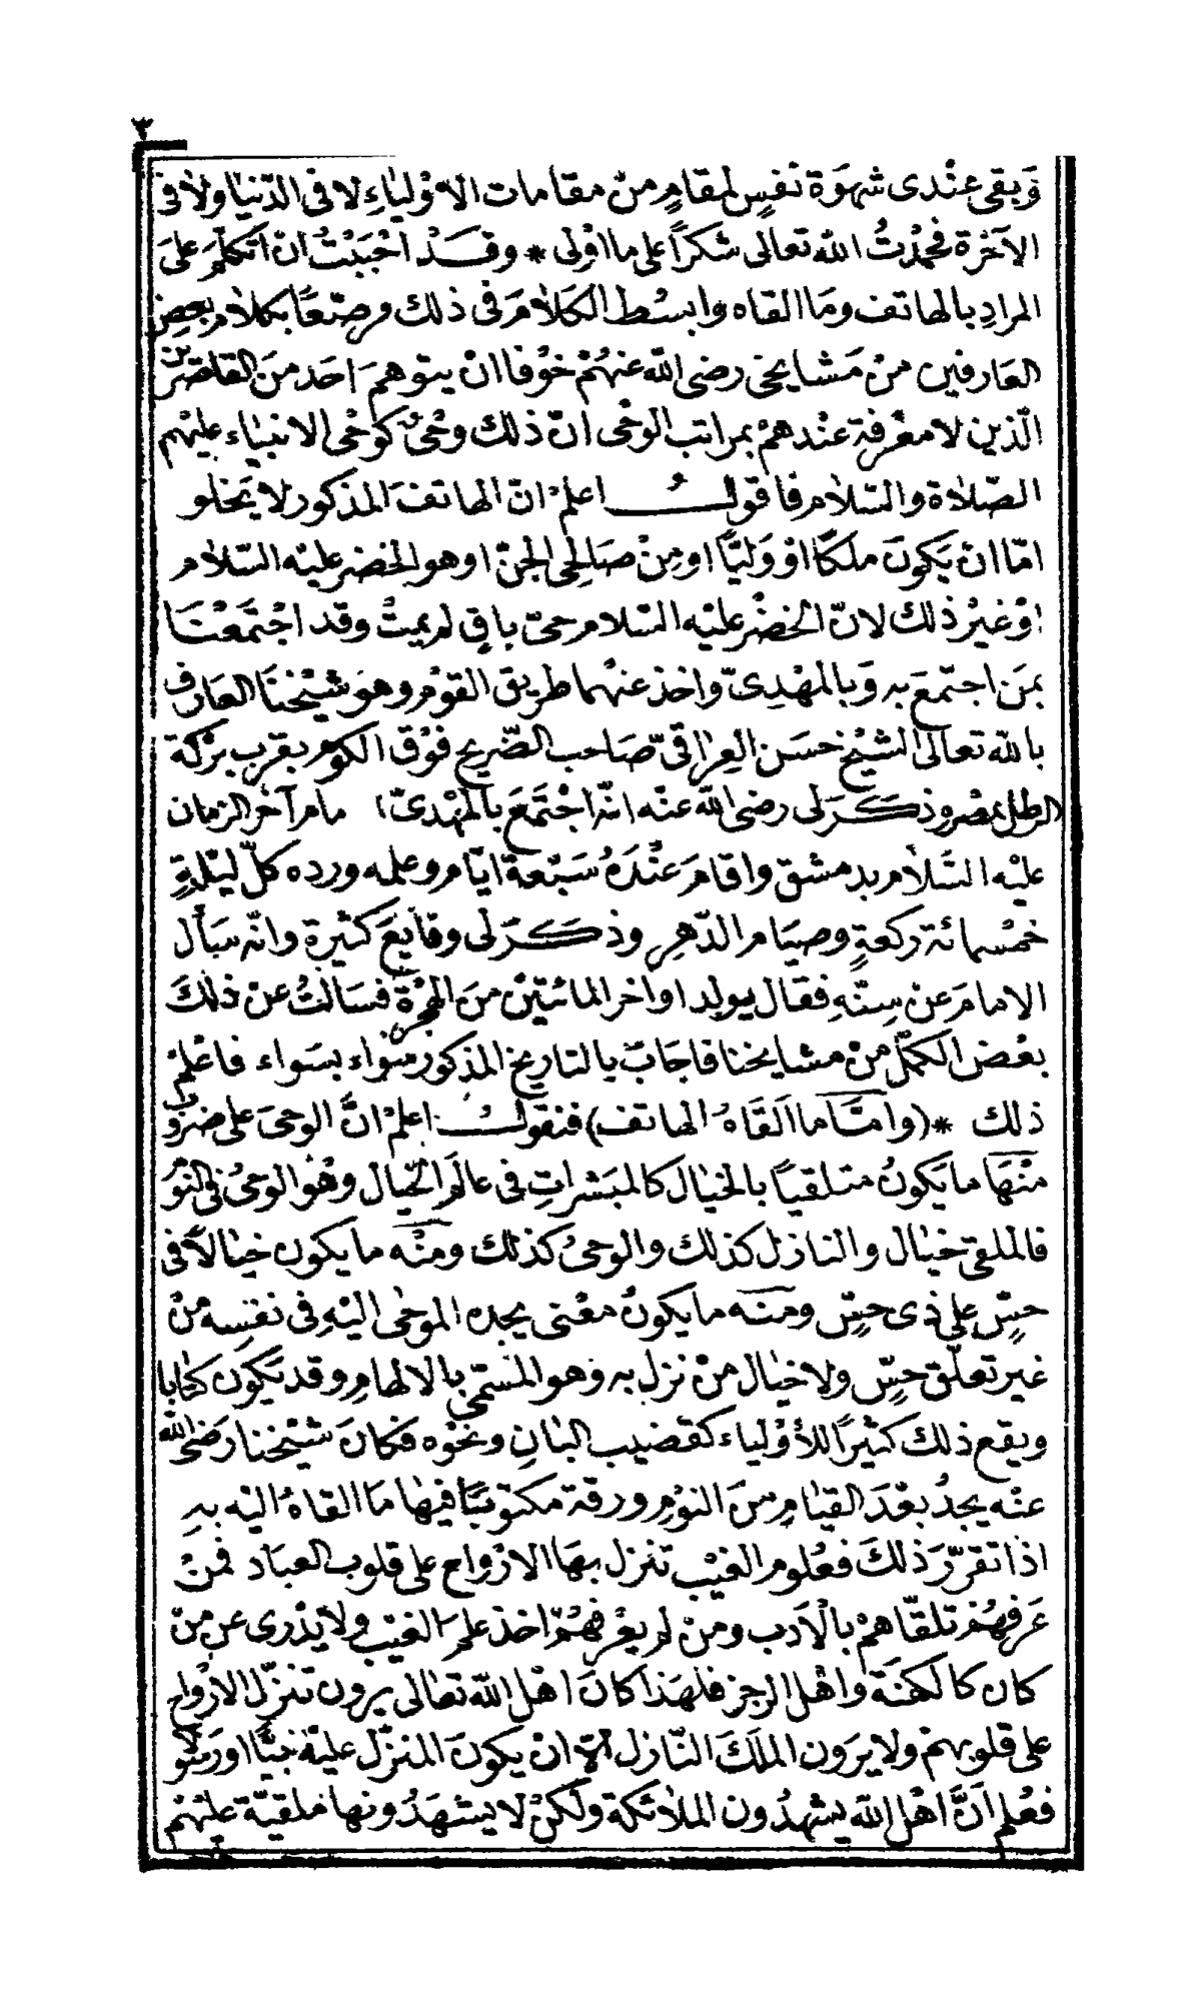 ٣
وَبقى عنْدى شهوَة نفسٍ لمقامٍ منْ مقامات الاوْلياءِ لا فى الدّنيا ولا فى
الآخرة فحمدْتُ الله تعالى شكراً على ما اوْلى * وقَدْ احْبَبْتُ انْ اتكلّمَ علىَ
المرادِ بالهاتف ومَا القاه وابسُط الكَلامَ فى ذلك مرصّعًا بكلام بعض
العَارفين منْ مَشايخى رضى الله عنْهمْ خوْفا انْ يتوهمَ احَد منَ القاصرين
الّذين لا معْرفة عنْدهمْ بمراتب الوحْى انّ ذلك وحْىٌ كوحْى الانبياء عليْهم
الصّلاة والسّلام فاقولُ اعلمْ انّ الهاتفَ المذكور لا يَخلو
امّا انْ يَكونَ ملكًا اوْ وَليًّا اومنْ صَالحى الجنّ اوهو الخضر عليْه السّلام
اوْ غيْر ذلك لانّ الخضْر عليْه السّلام حىّ باقٍ لم يمتْ وقد اجْتمَعْنَا
بمَن اجتمعَ به وَبالمهْدىّ واخذ عنْهما طريق القوْم وهوَ شيْخنَا العَارف
بالله تعالى الشيْخ حسَن العِراقىّ صَاحب الضّريح فوْق الكوْم بقرب برْكة
الرطل بمصْر وذكَرَ لى رضى الله عنْه انّه اجْتَمَعَ بالمَهْدىّ امام آخر الزمان
عليْه السَّلام بدمشق واقامَ عنْدَهُ سَبْعة ايّام وعلمه ورده كلّ ليْلةٍ
خمْسمائة ركعةٍ وصيَام الدّهرِ وذكَرَ لى وقايعَ كثيرة وانّه سَأل
الامامَ عن سِنّهِ فقال يولد اواخر المائتيْن منَ الهجْرة فسَالتُ عنْ ذلكَ
بعْض الكمَّل منْ مشايخنا فاجَابَ بالتاريخ المذكور سَواء بسَواء فاعْلمْ
ذلك *(وامَّا ما القَاهُ الهاتف) فنقولُ اعلمْ انَّ الوحىَ على ضروب
منْهَا ما يَكونُ متلقياً بالخيَال كالمبَشراتِ فى عالَم الخيال وهُو الوحىُ فى النوْم
فالملقى خيَال والنازل كذلك والوحىُ كذلك ومنْه ما يكون خيَالاً فى
حسٍّ على ذى حسٍّ ومنْه ما يكونُ معْنى يجده الموحى اليْهِ فى نفسِه منْ
غير تعلّق حسٍّ ولا خيَال منْ نزل به وهو المسَمّى بالالهامِ وقد يَكون كتابا
ويقع ذلكَ كثيراً للأوْلياء كقضيب البَانِ ونحْوه فكانَ شيْخنا رَضى الله
عنْه يجدُ بعْدَ القيَامِ منَ النوْمِ ورقة مكتوبًا فيهَا مَا القاهُ اليْه بهِ
اذا تقرّرَ ذلكَ فعُلوم الغيْب تنزل بهَا الارْواح على قلوب العبَاد فمنْ
عَرفهُمْ تلقّاهمْ بالأدب ومنْ لم يعْرفْهمْ اخذ علم الغيْب ولا يدْرى عن منْ
كان كالكهنَة واهْل الزجر فلهَذا كانَ اهْل الله تعَالى يرون تنزّل الارْواح
على قلوبهمْ ولا يرَون الملَكَ النّازل الاّ انْ يكونَ المنزّل عليْه نبيًّا اورسُولا
فعُلم أنَّ اهْل الله يشهدُون الملائكة ولكنْ لا يشهَدُونها ملقيّة عليْهمْ